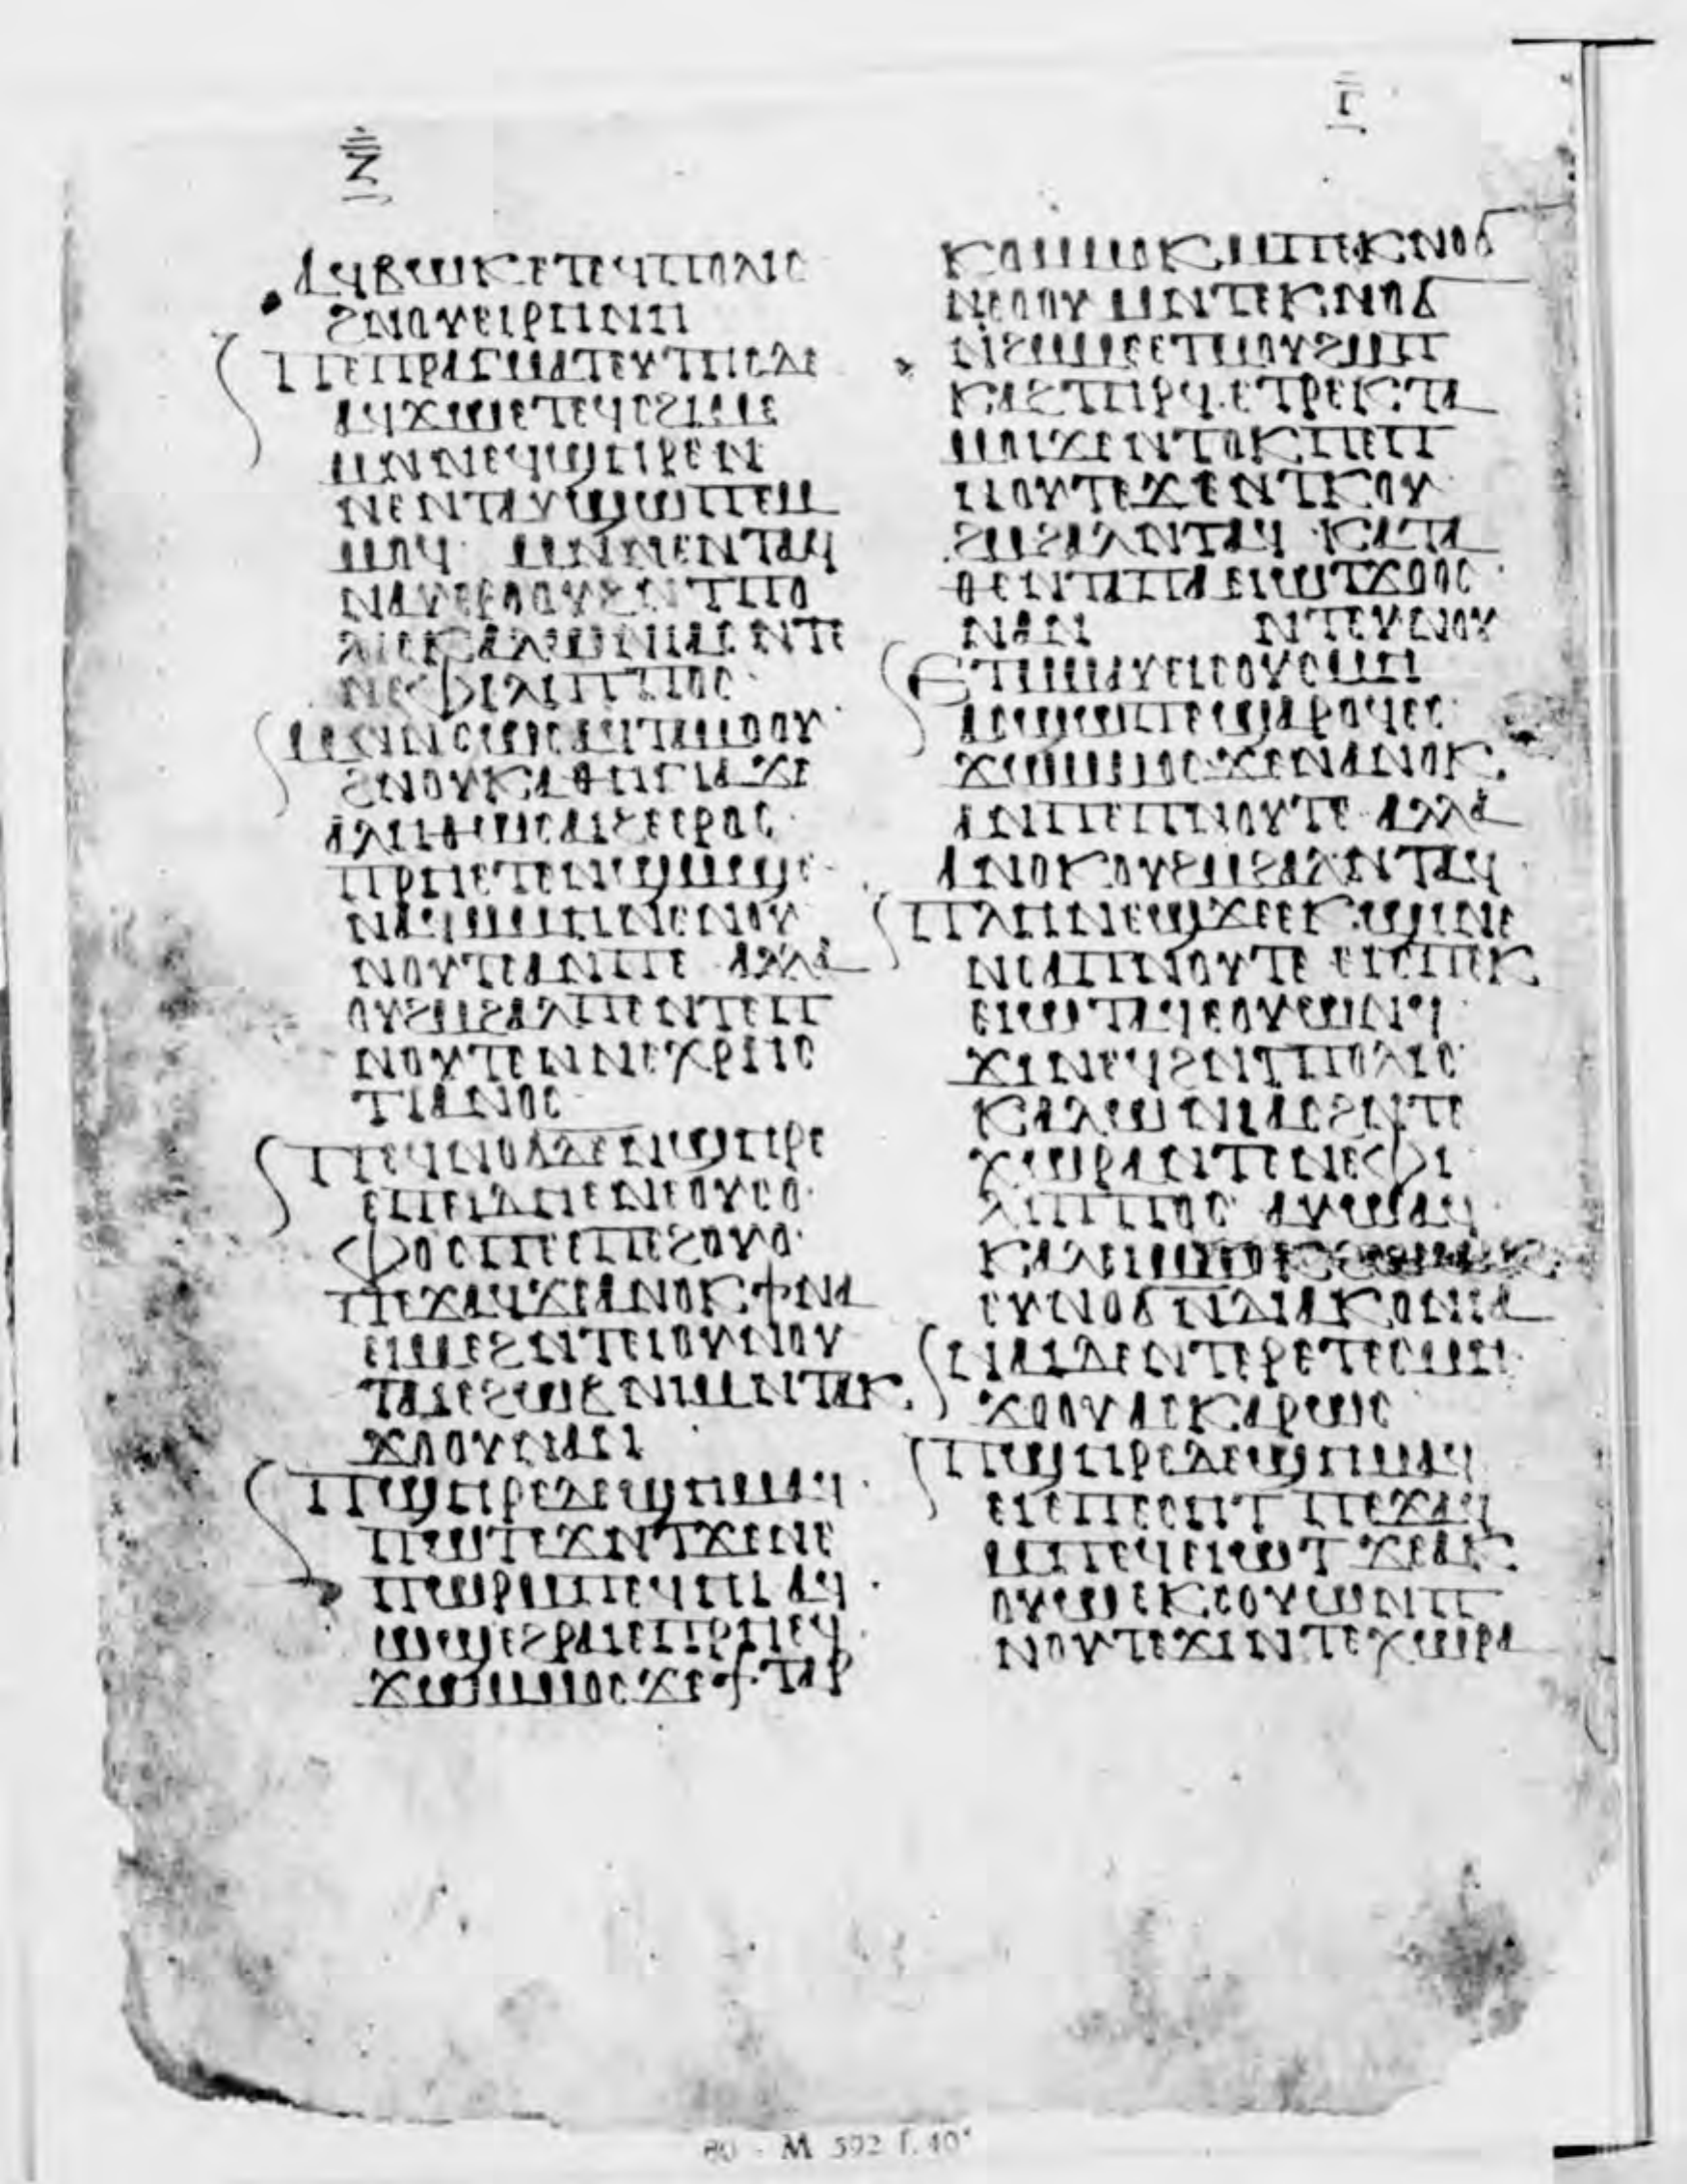 ⲝ
ⲅ
ⲁϥⲃⲱⲕ ⲉⲧⲉϥⲡⲟⲗⲓⲥ
ϩⲛⲟⲩⲉⲓⲣⲏⲛⲏ
ⲡⲉⲡⲣⲁⲅⲙⲁⲧⲉⲩⲧⲏⲥ ⲇⲉ
ⲁϥϫⲱ ⲉⲧⲉϥⲥϩⲓⲙⲉ
ⲙⲛ ⲛⲉϥϣⲏⲣⲉ ⲛ
ⲛⲉⲛⲧⲁⲩϣⲱⲡⲉ ⲙ
ⲙⲟϥ ⲙⲛ ⲛⲉⲛⲧⲁϥ
ⲛⲁⲩ ⲉⲣⲟⲟⲩ ϩⲛ ⲧⲡⲟ
ⲗⲓⲥ ⲕⲁⲗⲱⲛⲓⲁⲥ ⲛⲧⲉ
ⲛⲉⲫⲓⲗⲓⲡⲡⲟⲥ
ⲙⲛⲛⲥⲱⲥ
ϩⲛⲟⲩⲕⲁⲑⲏⲅⲓⲁ ϫⲉ
ⲁⲗⲏⲑⲱⲥ ⲁⲓϩⲉ ⲉⲣⲟⲥ
ⲡⲣⲏ ⲉⲧⲉⲛϣⲙϣⲉ
ⲛⲁϥ ⲙⲏⲛⲉ ⲛⲟⲩ
ⲛⲟⲩⲧⲉ ⲁⲛ ⲡⲉ ⲁⲗⲗⲁ
ⲟⲩϩⲙϩⲁⲗ ⲡⲉ ⲛⲧⲉ ⲡ
ⲛⲟⲩⲧⲉ ⲛⲛⲉⲭⲣⲏⲥ
ⲧⲓⲁⲛⲟⲥ
ⲡⲉϥⲛⲟϭ ⲇⲉ ⲛϣⲏⲣⲉ
ⲉⲡⲉⲓⲇⲏ ⲉⲛⲉⲟⲩⲥⲟ
ⲫⲟⲥ ⲡⲉ ⲉⲡⲉϩⲟⲩⲟ
ⲡⲉϫⲁϥ ϫⲉ ⲁⲛⲟⲕ ϯⲛⲁ
ⲉⲓⲙⲉ ϩⲛ ⲧⲉⲓⲟⲩⲛⲟⲩ
ⲧⲁⲓ ⲉϩⲱⲃ ⲛⲓⲙ ⲛⲧⲁⲕ
ϫⲟⲟⲩ ⲛⲁⲓ
ⲡϣⲏⲣⲉ ⲇⲉ ϣⲏⲙ ⲁϥ
ⲡⲱⲧ ⲉϫⲛ ⲧϫⲉⲛⲉ
ⲡⲱⲣ ⲙⲡⲉϥⲏⲓ ⲁϥ
ⲱϣ ⲉϩⲣⲁⲓ ⲉⲡⲣⲏ ⲉϥ
ϫⲱ ⲙⲙⲟⲥ ϫⲉ ϯⲧⲁⲣ
ⲕⲟ ⲙⲙⲟⲕ ⲙⲡⲉⲕⲛⲟϭ
ⲛⲉⲟⲟⲩ ⲙⲛ ⲧⲉⲕⲛⲟϭ
ⲛϩⲙⲙⲉ ⲉⲧⲙⲟⲩϩ ⲙⲡ
ⲕⲁϩ ⲧⲏⲣϥ ⲉⲧⲣⲉⲕⲧⲁ
ⲙⲟⲓ ϫⲉ ⲛⲧⲟⲕ ⲡⲉ ⲡ
ⲛⲟⲩⲧⲉ ϫⲉ ⲛⲧⲕ ⲟⲩ
ϩⲙϩⲁⲗ ⲛⲧⲁϥ ⲕⲁⲧⲁ
ⲑⲉ ⲛⲧⲁ ⲡⲁⲉⲓⲱⲧ ϫⲟⲟⲥ
ⲛⲁⲛ ⲛⲧⲉⲩⲛⲟⲩ
ⲉⲧⲙⲙⲁⲩ ⲉⲓⲥ ⲟⲩⲥⲙⲏ
ⲁⲥϣⲱⲡⲉ ϣⲁⲣⲟϥ ⲉⲥ
ϫⲱ ⲙⲙⲟⲥ ϫⲉ ⲛⲁⲛⲟⲕ
ⲁⲛ ⲡⲉ ⲡⲛⲟⲩⲧⲉ ⲁⲗⲗⲁ
ⲁⲛⲟⲕ ⲟⲩϩⲙϩⲁⲗ ⲛⲧⲁϥ
ⲡⲗⲏⲛ ⲉϣϫⲉ ⲉⲕϣⲓⲛⲉ
ⲛⲥⲁ ⲡⲛⲟⲩⲧⲉ ⲉⲓⲥ ⲡⲉⲕ
ⲉⲓⲱⲧ ⲁϥⲥⲟⲩⲱⲛϥ
ϫⲓⲛⲉϥϩⲛ ⲧⲡⲟⲗⲓⲥ
ⲕⲁⲗⲱⲛⲓⲁⲥ ϩⲛ ⲧⲉ
ⲭⲱⲣⲁ ⲛⲧⲉ ⲛⲉⲫⲓ
ⲗⲓⲡⲡⲟⲥ ⲁⲩⲱ ⲁϥ
ⲉⲩⲛⲟϭ ⲛⲇⲓⲁⲕⲟⲛⲓⲁ
ⲛⲁⲓ ⲇⲉ ⲛⲧⲉⲣⲉ ⲧⲉⲥⲙⲏ
ϫⲟⲟⲩ ⲁⲥⲕⲁⲣⲱⲥ
ⲡϣⲏⲣⲉ ⲇⲉ ϣⲏⲙ ⲁϥ
ⲉⲓ ⲉⲡⲉⲥⲏⲧ ⲡⲉϫⲁϥ
ⲙⲡⲉϥⲉⲓⲱⲧ ϫⲉ ⲁⲕ
ⲟⲩⲱ ⲉⲕⲥⲟⲩⲱⲛ ⲡ
ⲛⲟⲩⲧⲉ ϫⲓⲛ ⲧⲉⲭⲱⲣⲁ
80 - M 592 f. 40ᵛ